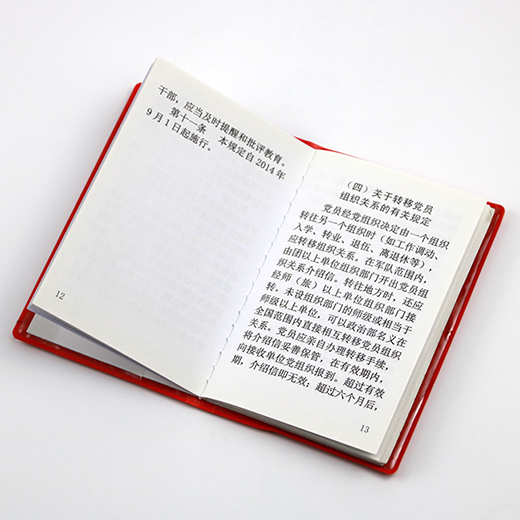 干部，应当及时提醒和批评教育。
第十一条　本规定自 2014 年
9 月 1 日起施行。
12
（四）关于转移党员
组织关系的有关规定
党员经党组织决定由一个组织
转往另一个组织时（如工作调动、
入学、转业、退伍、离退休等），
应转移组织关系。在军队范围内，
由团以上单位组织部门开出党员组
织关系介绍信。转往地方时，还应
经师（旅）以上单位组织部门接
转。未设组织部门的师级或相当于
师级以上单位，可以政治部名义在
全国范围内直接相互转移党员组织
关系。党员应亲自办理转移手续，
将介绍信妥善保管，在有效期内，
向接收单位党组织报到。超过有效
期，介绍信即无效；超过六个月后，
13